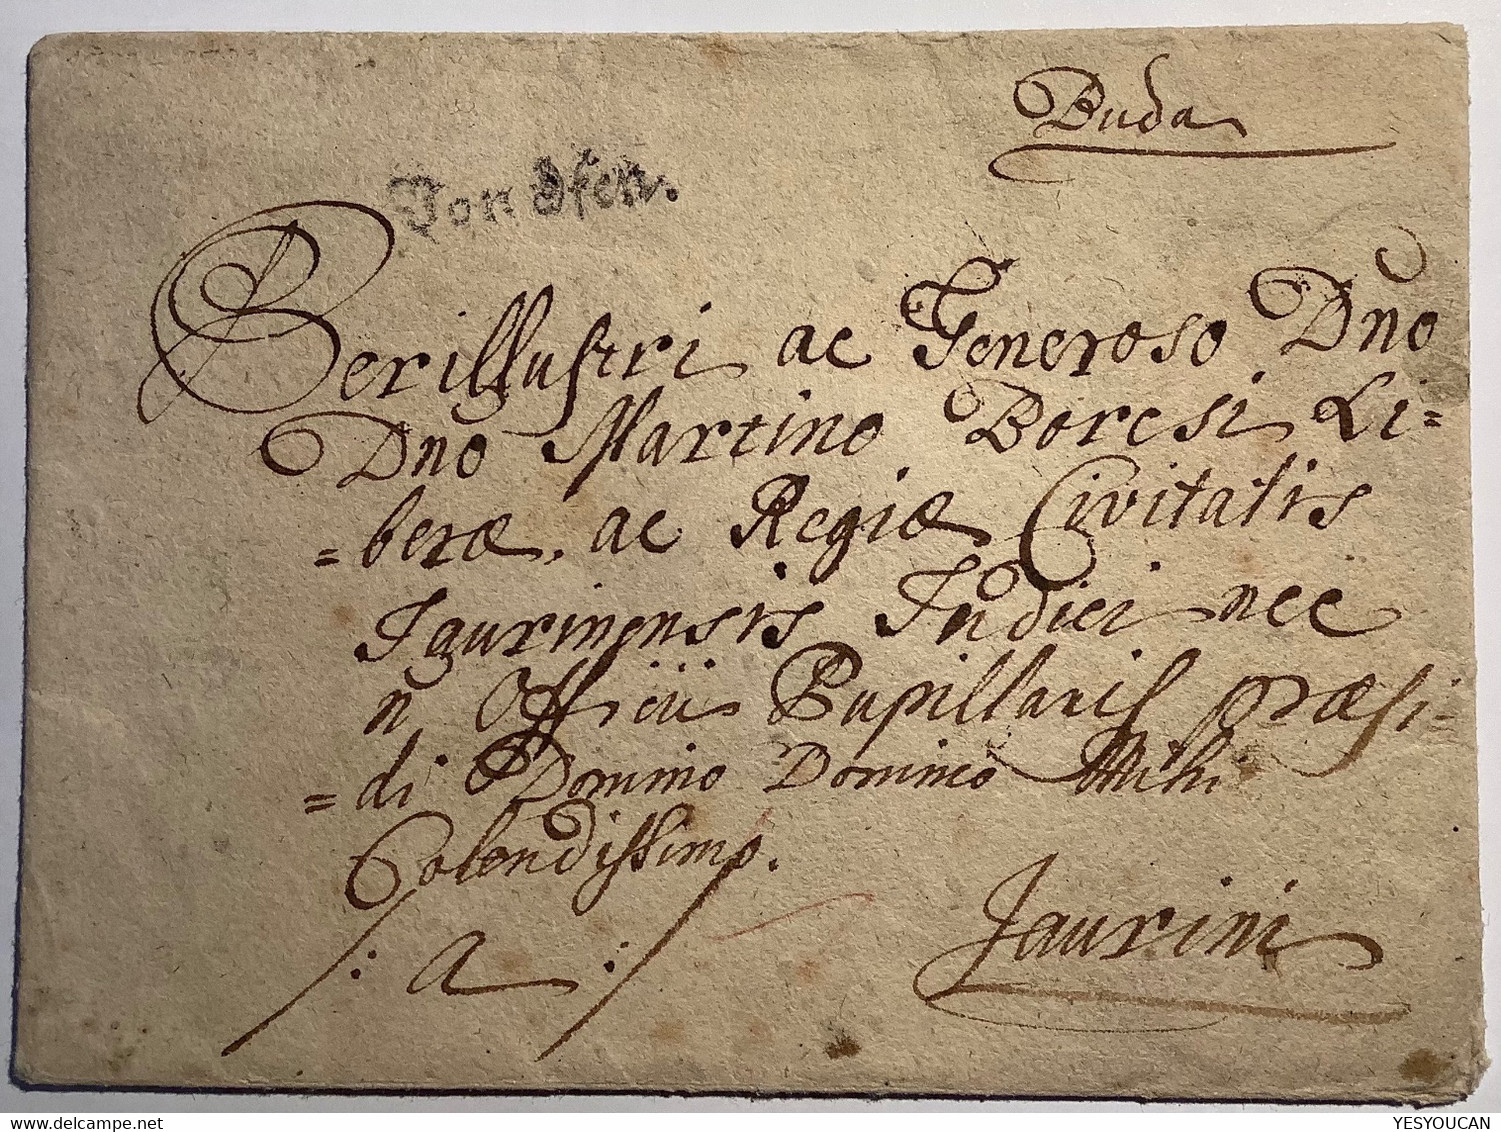 Buda
Von Ofen.
Perillustri ac Generoso Dno
Dno Martino Borcsi Li=
=beræ, ac Regiæ Civitatis
Jaurinensis Judici nec
n Officii Pupillaris præsi=
=di Domino Domino Mihi
Colendissimo.
/: a :/
Jaurini
www.delcampe.net
YESYOUCAN